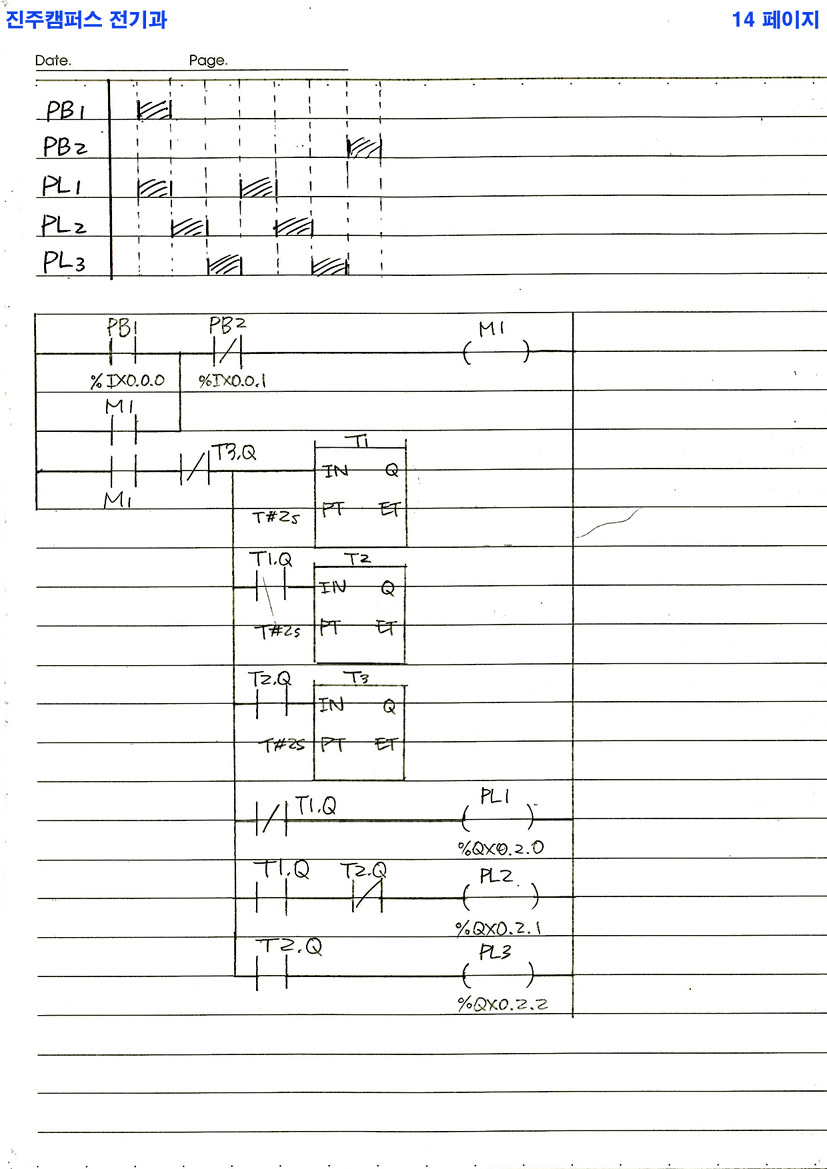 진주캠퍼스 전기과 14 페이지
Date. Page.
PB1
PB2
PL1
PL2
PL3
PB1 PB2 M1
%IX0.0.0 %IX0.0.1
M1
T3.Q T1
IN Q
M1
T#2s PT ET
T1.Q T2
IN Q
T#2s PT ET
T2.Q T3
IN Q
T#2s PT ET
T1.Q PL1
%QX0.2.0
T1.Q T2.Q PL2
%QX0.2.1
T2.Q PL3
%QX0.2.2